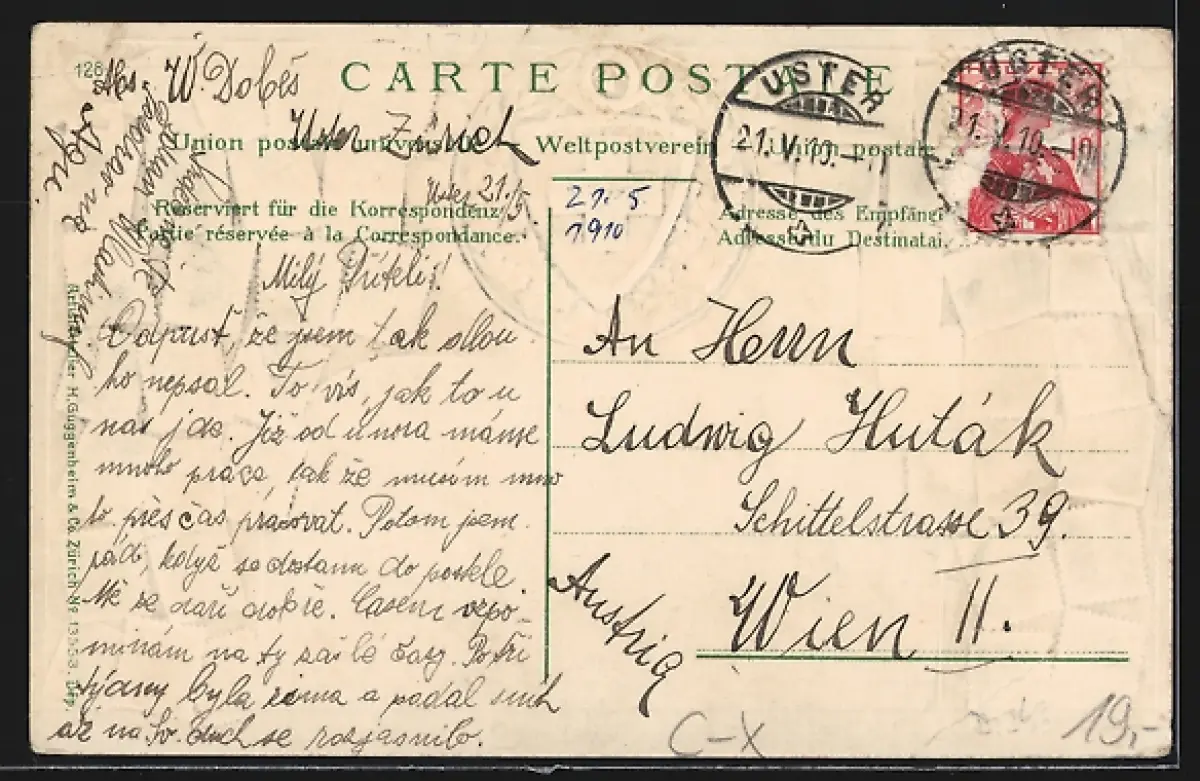 128
CARTE POSTALE
Abs. W. Dobeš
Uster Zürich
Union postale universelle — Weltpostverein — Unione postale
USTER
21.V.10.
USTER
21.V.10.
10
Uster 21./5.
21. 5.
1910
Reserviert für die Korrespondenz
Partie réservée à la Correspondance.
Adresse des Empfängers
Adresse du Destinatai.
Milý Příteli!
Odpusť, že jsem tak dlou
ho nepsal. To víš, jak to u
nas jde. Již od unora máme
mnoho prace, tak že musím mno
to přes čas pracovat. Potom jsem
rád, když se dostanu do postele.
Mě se daří dobře. Časem vzpo-
mínám na ty zašlé časy. Po tři
týdny byla zima a padal sníh
až na Sv. Duch se rozjasnilo.
An Herrn
Ludwig Huták
Schüttelstrasse 39.
Wien II.
Austria
Art. Atelier H. Guggenheim & Co. Zürich No. 13553. Dép.
C-X
19,-